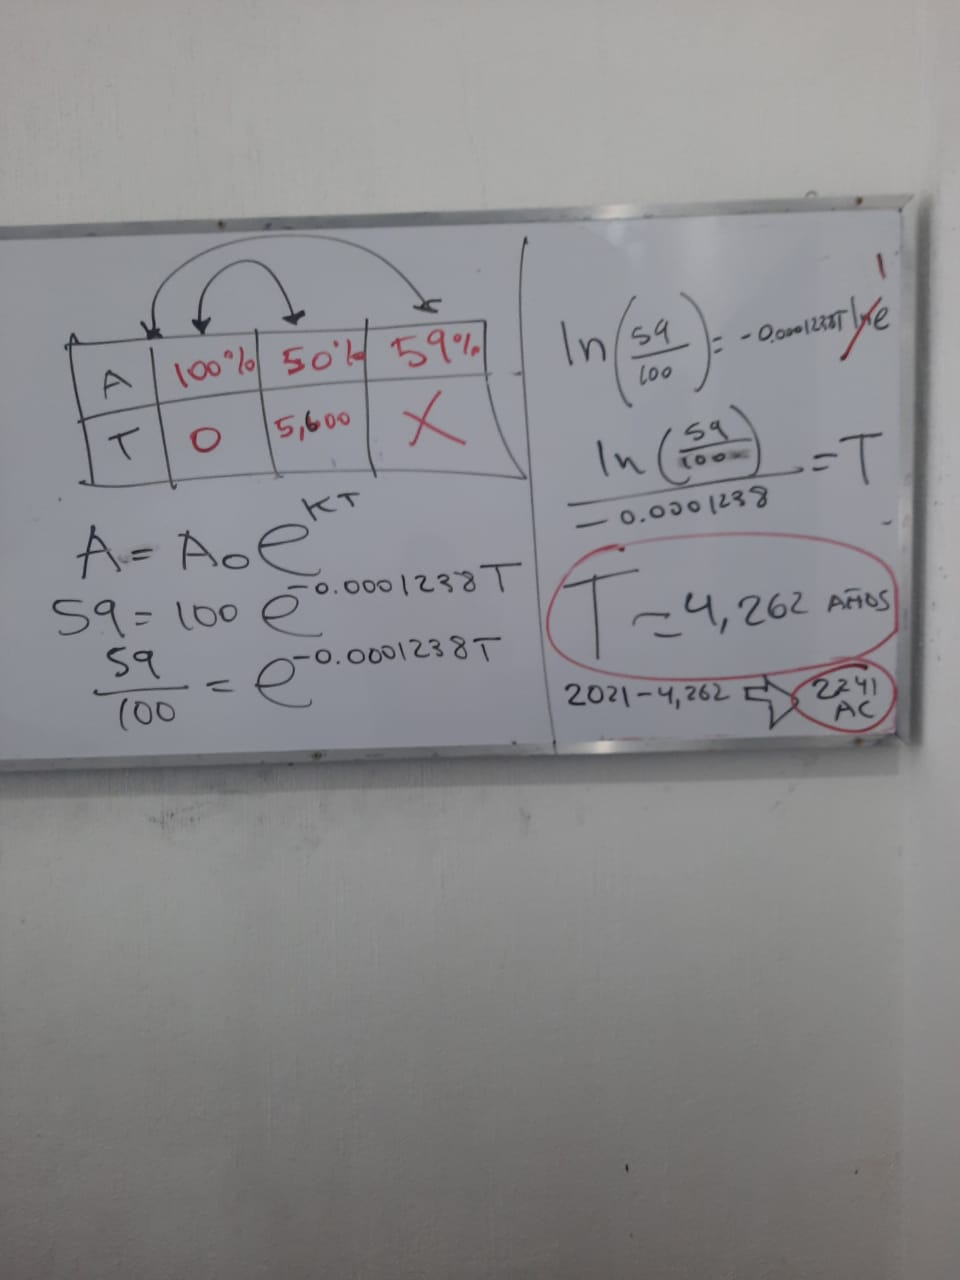 A 100% 50% 59%
T 0 5,600 X
A = A₀e^KT
59 = 100 e^-0.0001238T
59/100 = e^-0.0001238T
ln(59/100) = -0.0001238T ln e 1
ln(59/100)/-0.0001238 = T
T = 4,262 AÑOS
2021-4,262 ⇨ 2241 AC